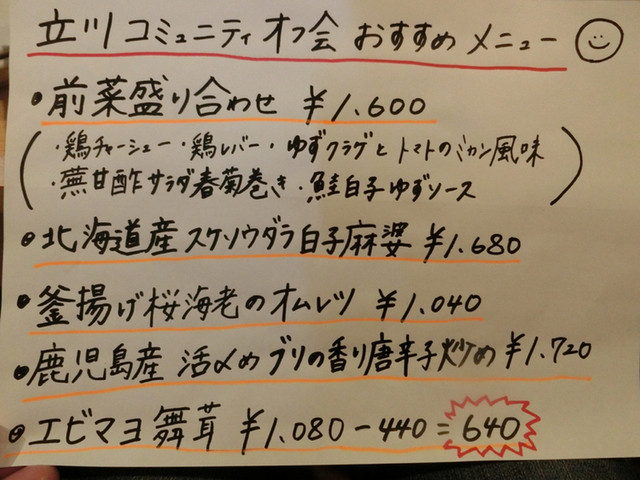 立川コミュニティオフ会 おすすめメニュー
・前菜盛り合わせ ¥1.600
(・鶏チャーシュー・鶏レバー・ゆずクラゲとトマトのミカン風味
・蕪甘酢サラダ春菊巻き・鮭白子ゆずソース)
・北海道産スケソウダラ白子麻婆 ¥1.680
・釜揚げ桜海老のオムレツ ¥1.040
・鹿児島産 活〆めブリの香り唐辛子炒め ¥1.720
・エビマヨ舞茸 ¥1.080-440=640